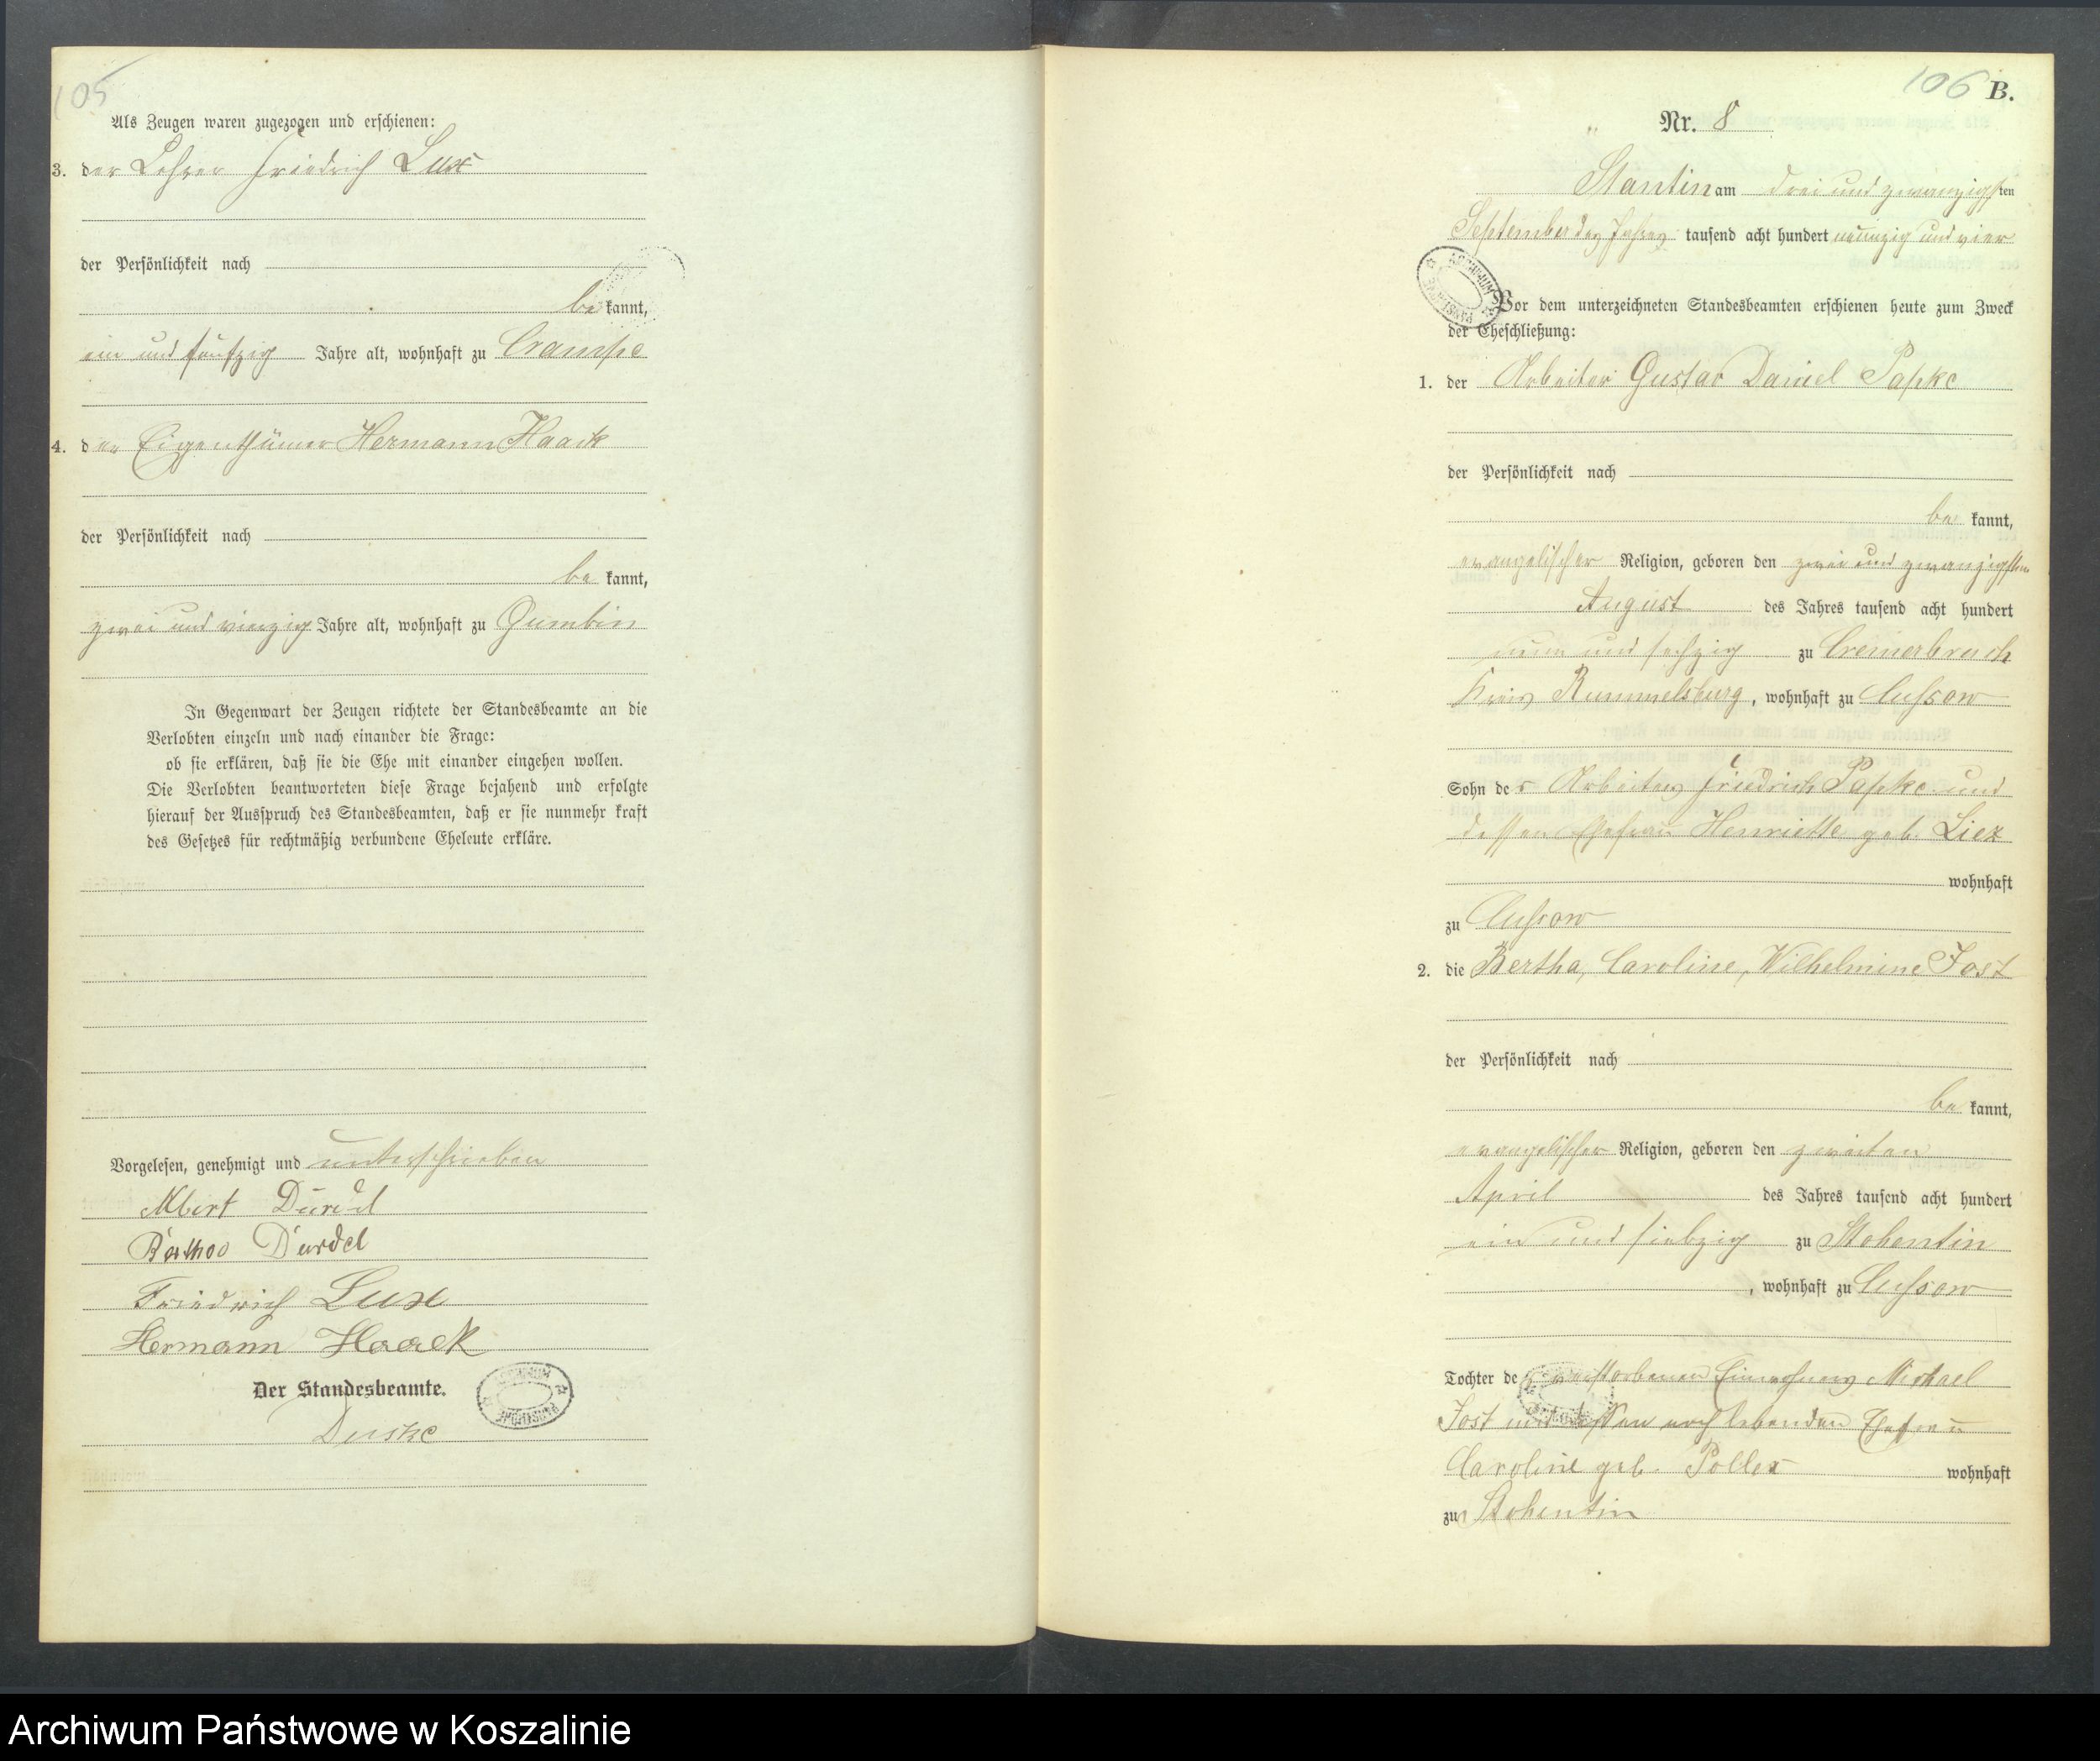 105
Als Zeugen waren zugezogen und erschienen:
3. der Lehrer Friedrich Lux
der Persönlichkeit nach
be kannt,
ein und fünfzig Jahre alt, wohnhaft zu Crampe
4. der Eigenthümer Hermann Haack
der Persönlichkeit nach
be kannt,
zwei und vierzig Jahre alt, wohnhaft zu Gumbin
In Gegenwart der Zeugen richtete der Standesbeamte an die
Verlobten einzeln und nach einander die Frage:
ob sie erklären, daß sie die Ehe mit einander eingehen wollen.
Die Verlobten beantworteten diese Frage bejahend und erfolgte
hierauf der Ausspruch des Standesbeamten, daß er sie nunmehr kraft
des Gesetzes für rechtmäßig verbundene Eheleute erkläre.
Vorgelesen, genehmigt und unterschrieben
Albert
Friedrich Lux
Hermann Haack
Der Standesbeamte.
106 B.
Nr. 8
Stantin am drei und zwanzigsten
September des Jahres tausend acht hundert neunzig und vier
ARCHIWUM PAŃSTWOWE
Vor dem unterzeichneten Standesbeamten erschienen heute zum Zweck
der Eheschließung:
1. der Arbeiter Gustav Daniel Papke
der Persönlichkeit nach
be kannt,
evangelischer Religion, geboren den zwei und zwanzigsten
August des Jahres tausend acht hundert
neun und sechzig zu Cremerbruch
Kreis Rummelsburg, wohnhaft zu Cussow
Sohn des Arbeiters Friedrich Papke und
dessen Ehefrau Henriette geb. Liez
wohnhaft
zu Cussow
2. die Bertha, Caroline, Wilhelmine Jost
der Persönlichkeit nach
be kannt,
evangelischer Religion, geboren den zweiten
April des Jahres tausend acht hundert
ein und siebzig zu Stohentin
, wohnhaft zu Cussow
Tochter des verstorbenen Einwohners Michael
Jost und dessen noch lebenden Ehefrau
Caroline geb. Pollex wohnhaft
zu Stohentin
Archiwum Państwowe w Koszalinie